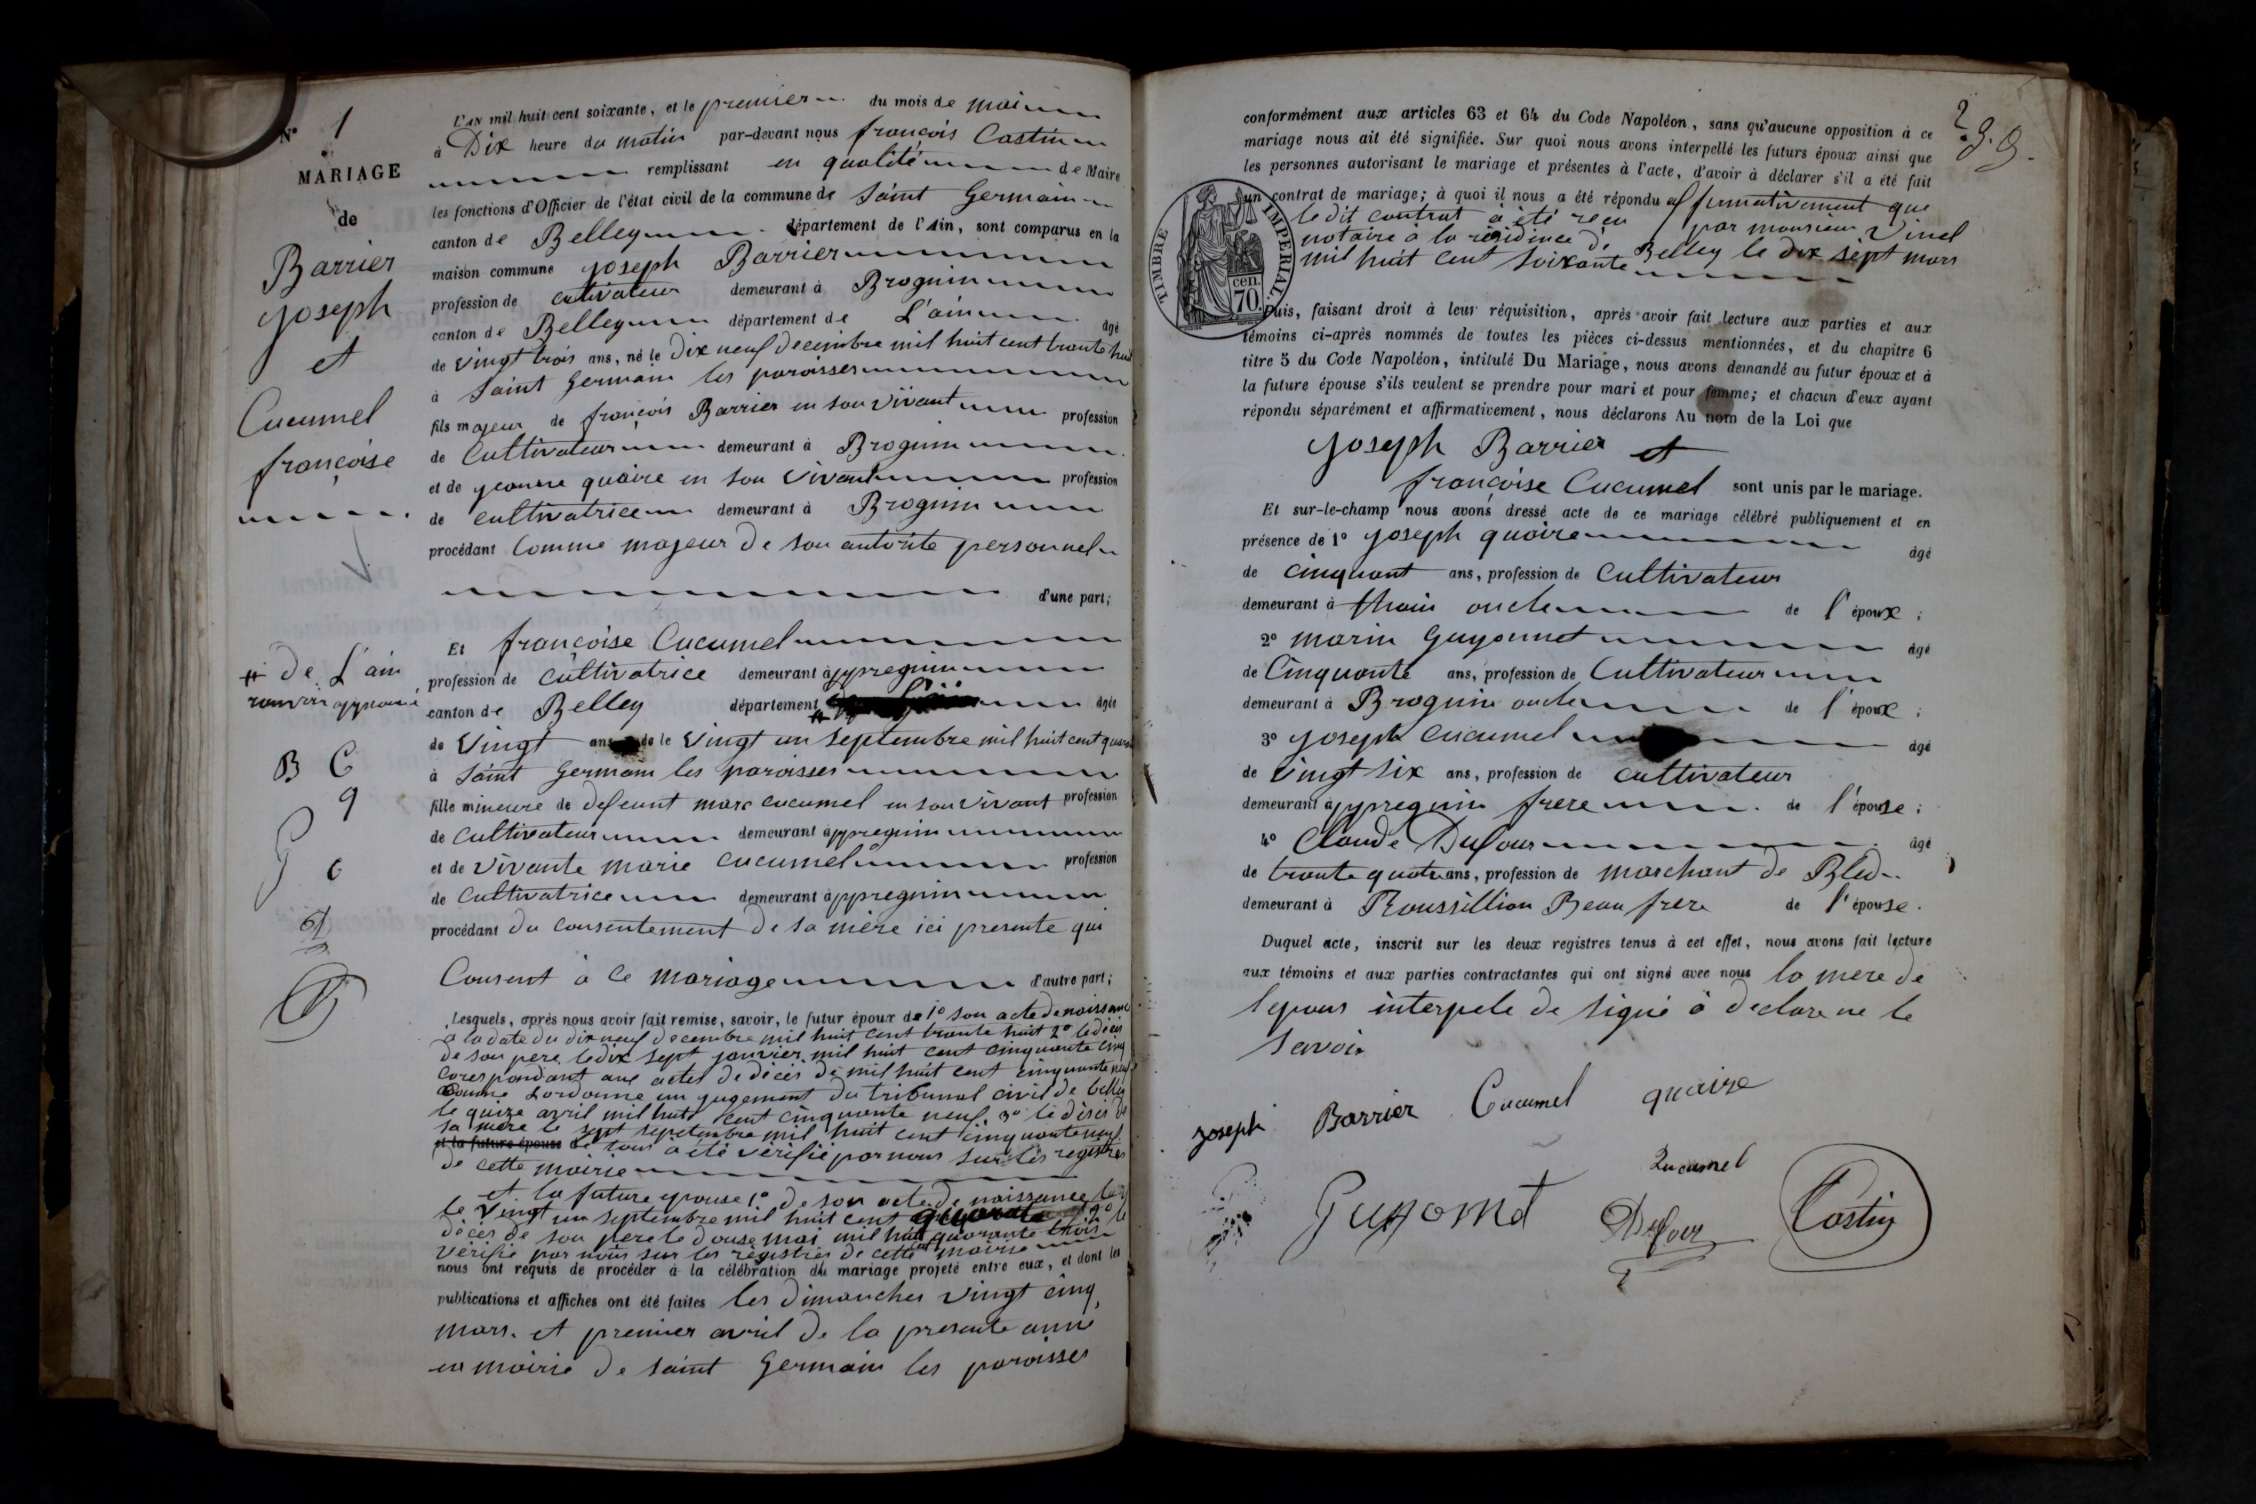 N° 1
MARIAGE
de
Barrier
Joseph
et
Cucumel
françoise
# de L'ain
B C
q
G
c
D
L'AN mil huit cent soixante, et le premier du mois de mai
à Dix heure du matin par-devant nous françois Castin
remplissant en qualité de Maire
les fonctions d'Officier de l'état civil de la commune de Saint Germain
canton de Belley département de l'Ain, sont comparus en la
maison commune Joseph Barrier
profession de cultivateur demeurant à Brognin
canton de Belley département de L'ain âgé
de vingt trois ans, né le Dix neuf decembre mil huit cent trante huit
à Saint Germain les paroisses
fils majeur de françois Barrier en son vivant profession
de Cultivateur demeurant à Brognin
et de jeanne quaire en son vivant profession
de cultivatrice demeurant à Brognin
procédant Comme majeur de son autorite personnel
d'une part;
Et françoise Cucumel
profession de cultivatrice demeurant à appregnin
canton de Belley département # âgée
de Vingt ans le Vingt un septembre mil huit cent
à Saint Germain les paroisses
fille mineure de defeunt marc cucumel en son vivant profession
de Cultivateur demeurant à appregnin
et de vivante marie cucumel profession
de Cultivatrice demeurant à appregnin
procédant du consentement de sa mère ici presente qui
Consent à ce mariage d'autre part;
Lesquels, après nous avoir fait remise, savoir, le futur époux de 1° son acte de naissance
a la date du dix neuf decembre mil huit cent trante huit 2° le décès
de son pere le dix sept janvier mil huit cent cinquante cinq
corespondant aux actes de décès de mil huit cent cinquante neuf
comme l'ordonne un jugement du tribunal civil de belley
le quize avril mil huit cent cinquante neuf 3° le décès de
sa mère le sept septembre mil huit cent cinquante neuf
et la future épouse de tous à été vérifié par nous sur les registres
de cette mairie
et la future epouse 1° de son acte de naissance
le vingt un septembre mil huit cent quarate 2° le
décès de son pere le douse mai mil huit cent quarante trois
vérifié par nous sur les régistres de cette mairie
nous ont requis de procéder à la célébration du mariage projeté entre eux, et dont les
publications et affiches ont été faites les dimanches vingt cinq
mars et premier avril de la presente anne
en mairie de saint Germain les paroisses
239.
conformément aux articles 63 et 64 du Code Napoléon, sans qu'aucune opposition à ce
mariage nous ait été signifiée. Sur quoi nous avons interpellé les futurs époux ainsi que
les personnes autorisant le mariage et présentes à l'acte, d'avoir à déclarer s'il a été fait
un contrat de mariage; à quoi il nous a été répondu affirmativement que
le dit contrat à été recu par monsieur Vinel
notaire à la résidence de Belley le dix sept mars
mil huit cent soixante
TIMBRE IMPERIAL.
70. cen.
Puis, faisant droit à leur réquisition, après avoir fait lecture aux parties et aux
témoins ci-après nommés de toutes les pièces ci-dessus mentionnées, et du chapitre 6
titre 5 du Code Napoléon, intitulé Du Mariage, nous avons demandé au futur époux et à
la future épouse s'ils veulent se prendre pour mari et pour femme; et chacun d'eux ayant
répondu séparément et affirmativement, nous déclarons Au nom de la Loi que
Joseph Barrier et
françoise Cucumel sont unis par le mariage.
Et sur-le-champ nous avons dressé acte de ce mariage célébré publiquement et en
présence de 1° Joseph quaire âgé
de cinquant ans, profession de Cultivateur
demeurant à thoin oncle de l'époux;
2° marin Guyonnet âgé
de Cinquante ans, profession de Cultivateur
demeurant à Brognin oncle de l'époux;
3° Joseph Cucumel âgé
de vingt six ans, profession de cultivateur
demeurant à appregnin frere de l'épouse;
4° Claude Dufour âgé
de trante quatre ans, profession de marchant de Bled
demeurant à Roussillion Beau frere de l'épouse.
Duquel acte, inscrit sur les deux registres tenus à cet effet, nous avons fait lecture
aux témoins et aux parties contractantes qui ont signé avec nous la mere de
lepous interpele de signé à declare ne le
savoir
Joseph Barrier Cucumel quaire
Cucumel
Guyonnet Dufour Castin